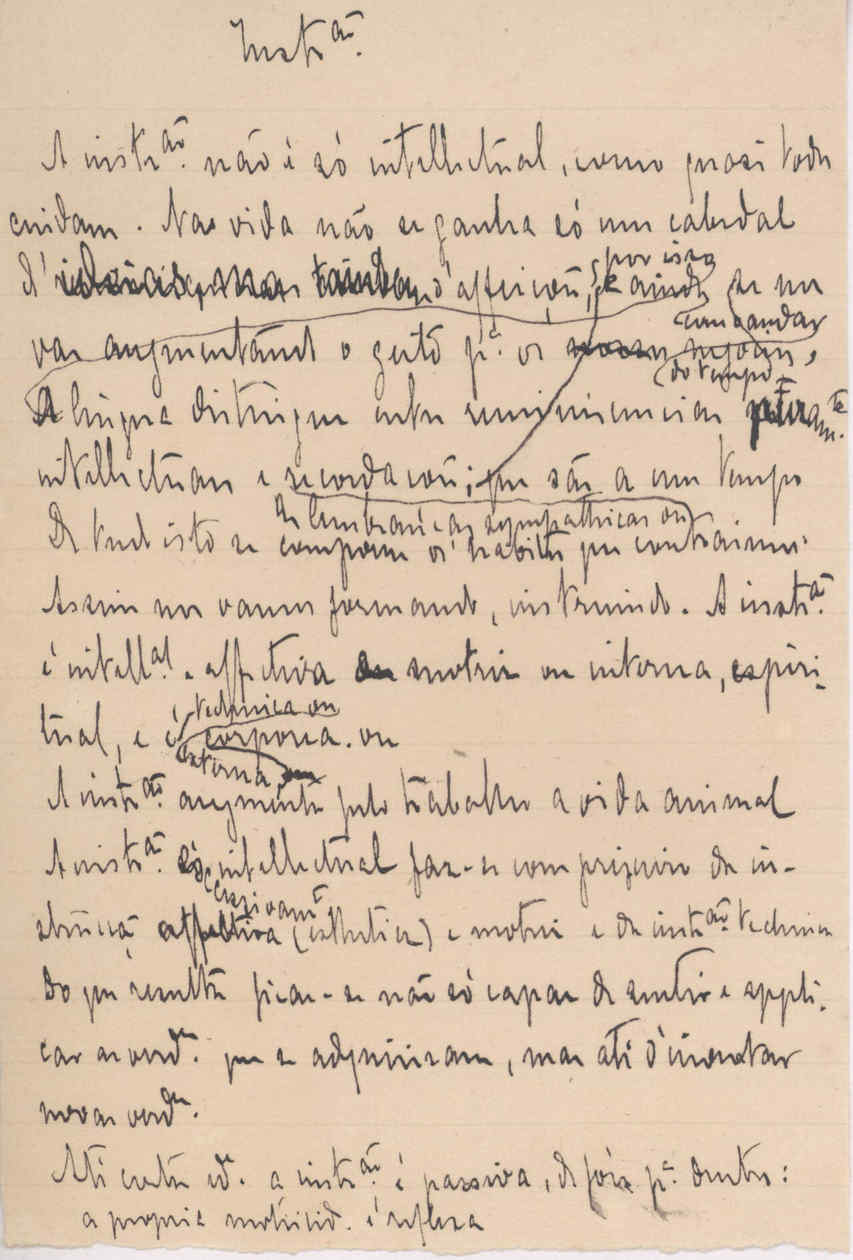 Instr.ão
A instr.ão não é só intellectual, como quasi todos
cuidam. Na vida não se ganha só um cabedal
d'ideias, mas tambem d'affeições, por isso
e ainda se nos
vae augmentando o gosto p.ª os
A lingua distingue entre reminiscencias puram.te
do tempo
intellectuaes e recordações; que são a um tempo
as lembranças sympathicas ou
De tudo isto se compoem os habitos que contraimos.
Assim nos vamos formando, instruindo. A instr.ão
é intell.al e affectiva motriz ou interna, espiri-
technica ou
tual, e é corporea. ou
externa,
A instr.ão augmenta pelo trabalho a vida animal
A instr.ão só intellectual faz-se com prejuizo da in-
strucção affectiva (esthetica) e motriz e da instr.ão technica
Do que resulta ficar-se não só capaz de sentir e appli-
car as verd.es que se adquiriram, mas até d'inventar
novas verd.es.
Até certa ed.e a instr.ão é passiva, de fóra p.ª dentro:
a propria motricid.e é reflexa